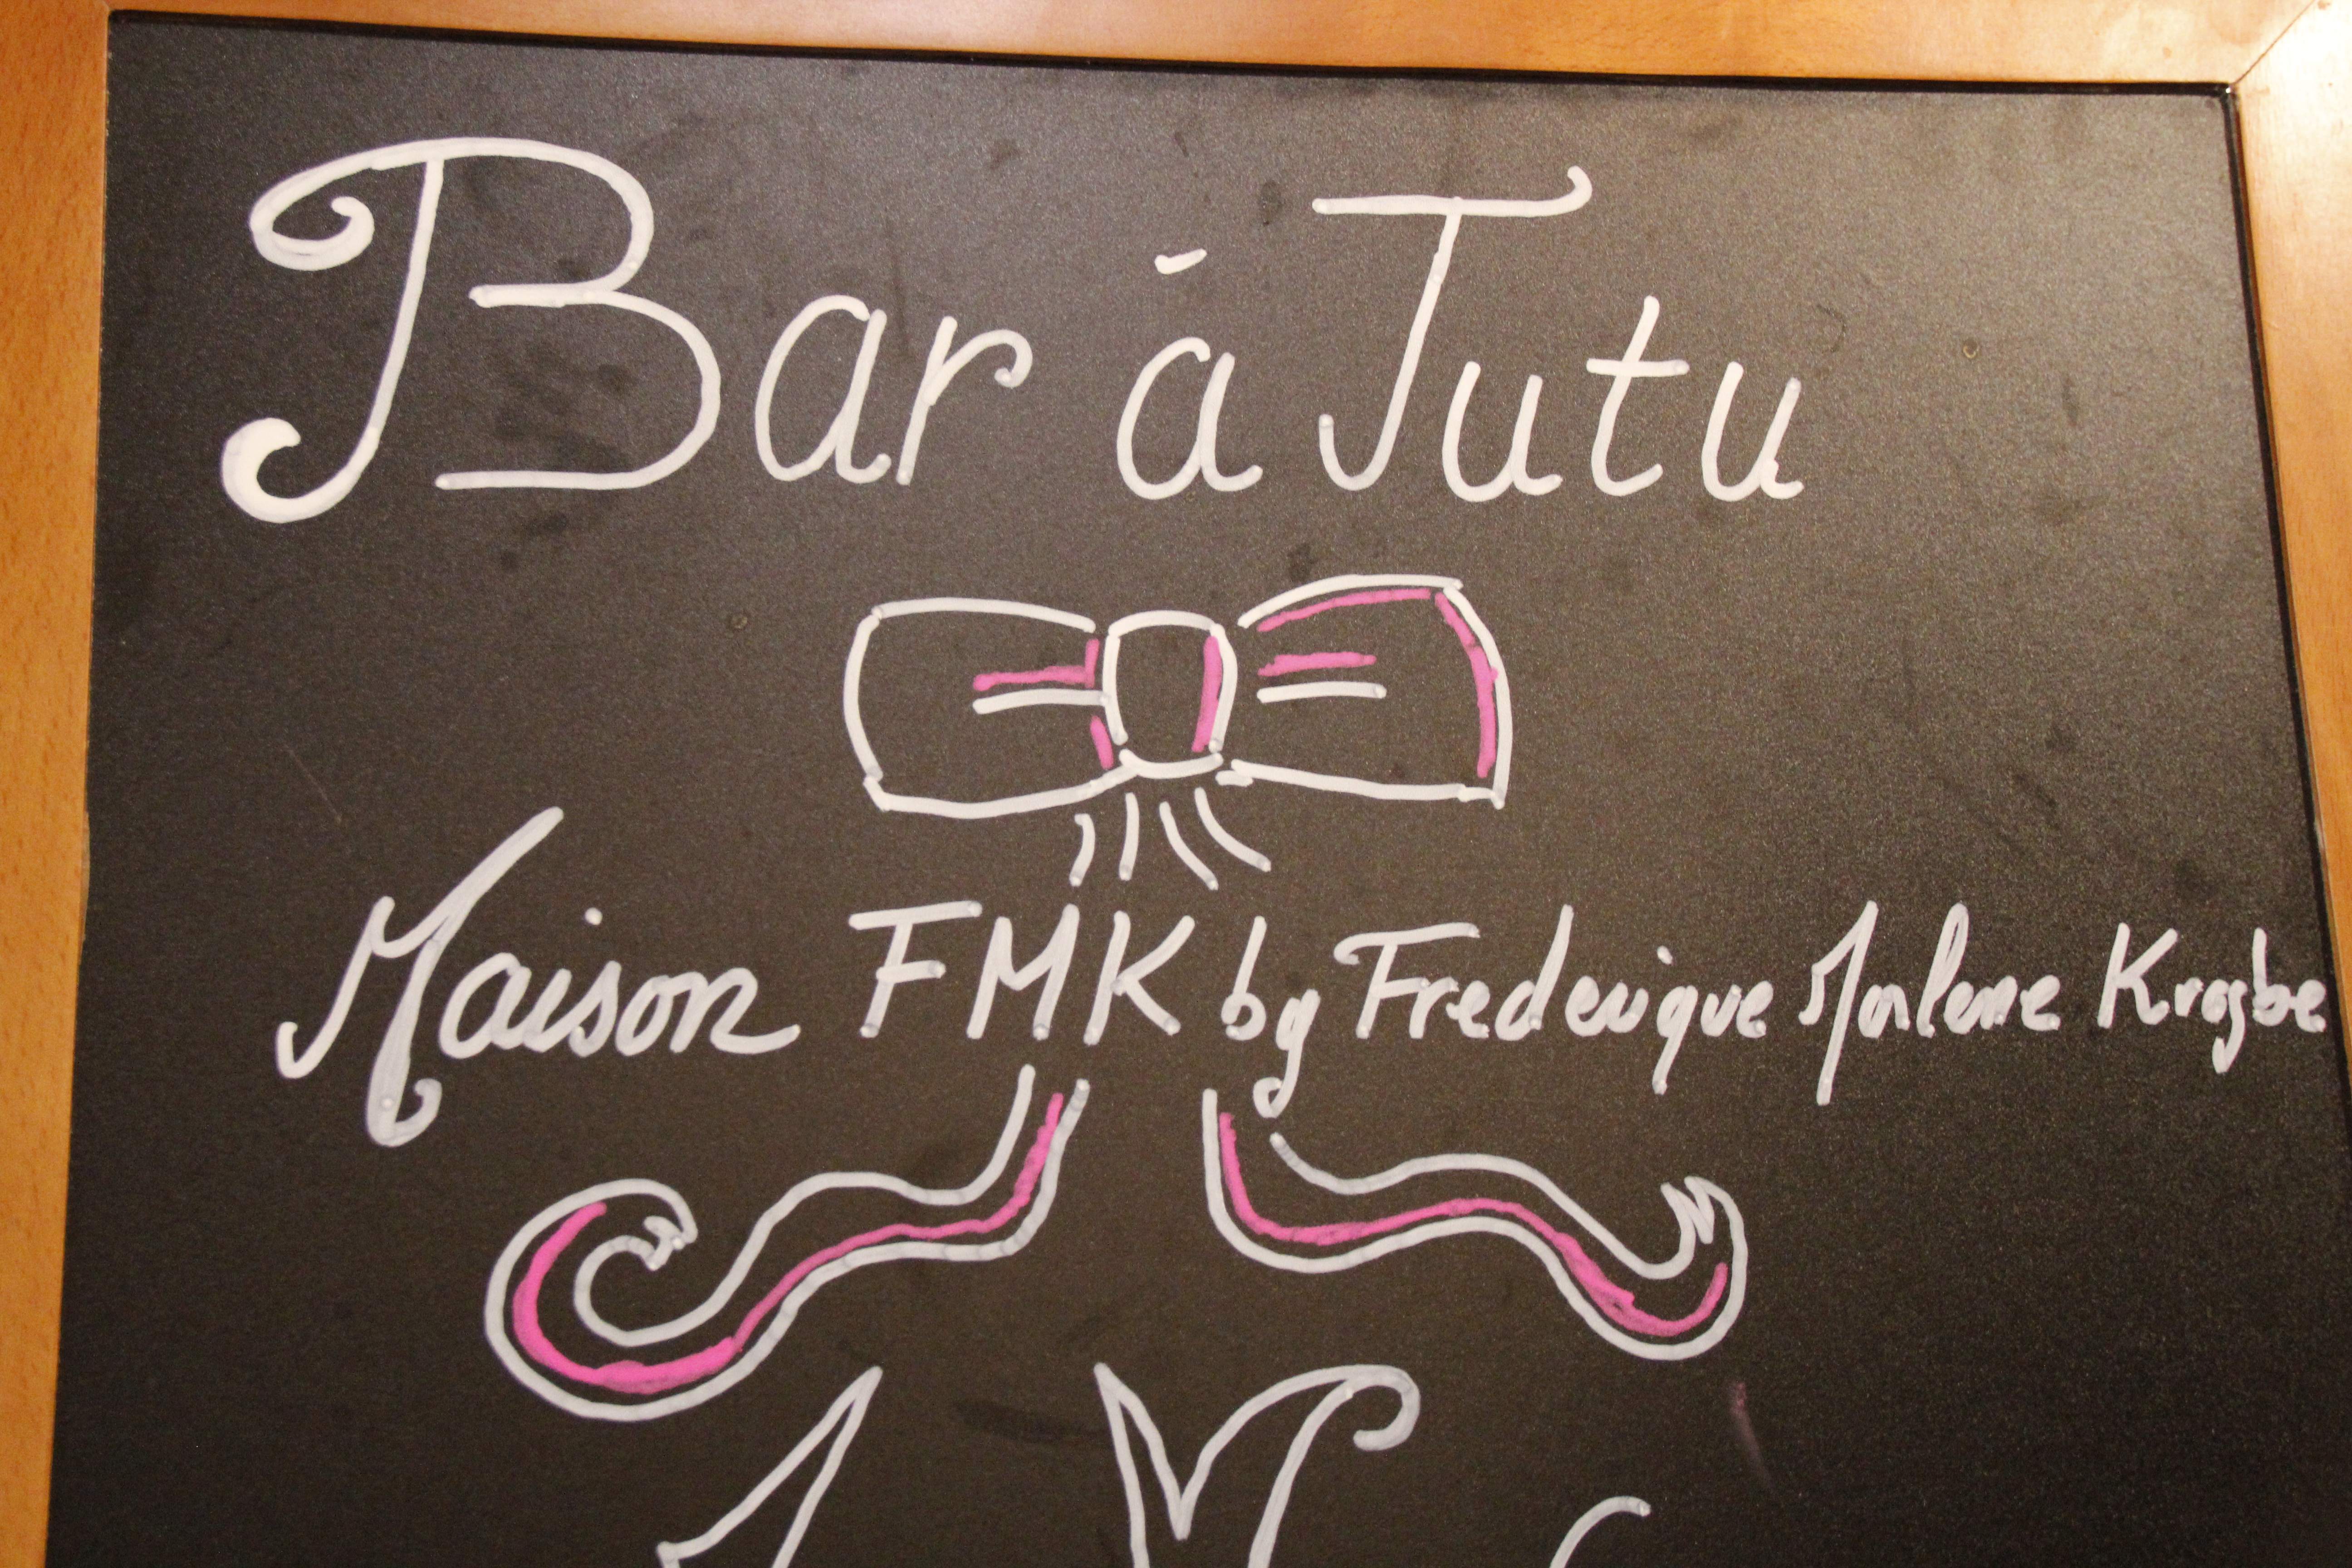 Bar á Tutu
Maison FMK by Frederique Marlene Krogbe